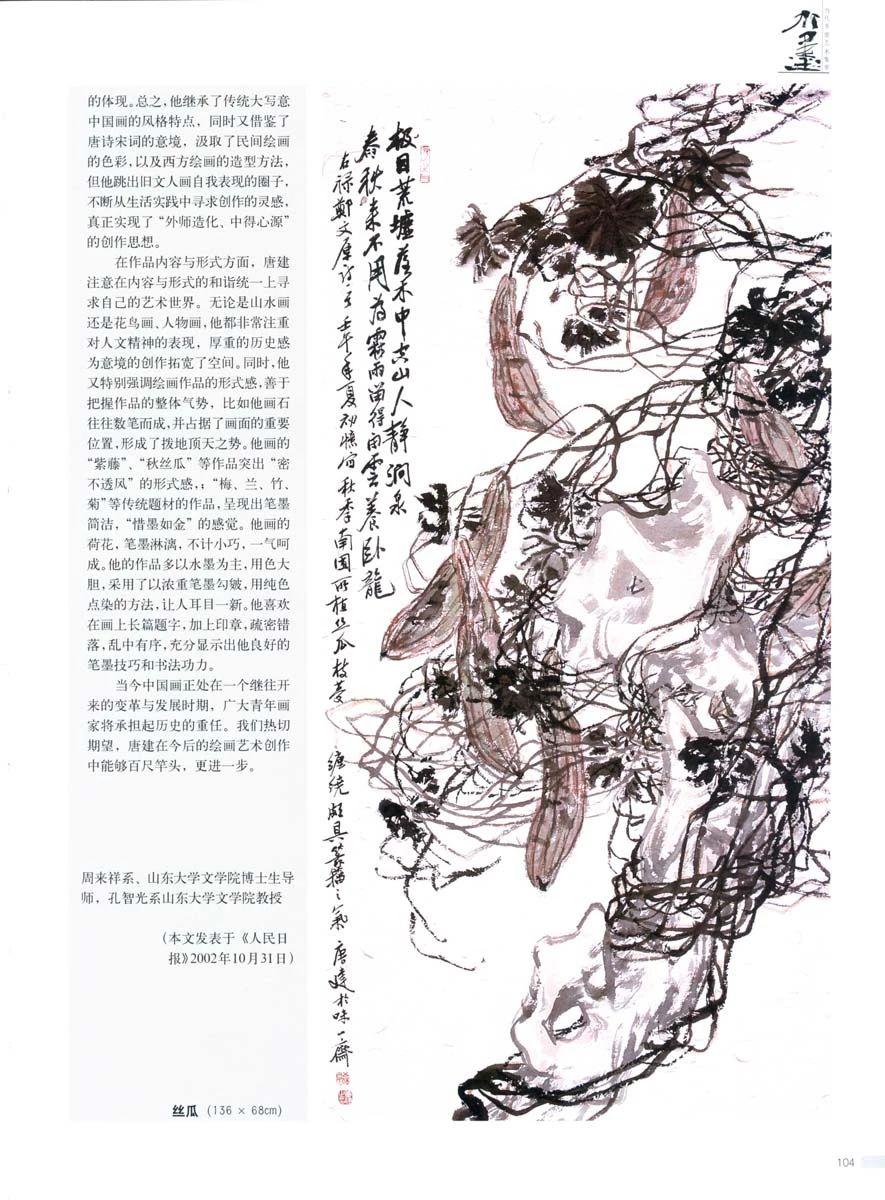 的体现。总之,他继承了传统大写意
中国画的风格特点，同时又借鉴了
唐诗宋词的意境，汲取了民间绘画
的色彩,以及西方绘画的造型方法,
但他跳出旧文人画自我表现的圈子,
不断从生活实践中寻求创作的灵感,
真正实现了“外师造化、中得心源”
的创作思想。
在作品内容与形式方面，唐建
注意在内容与形式的和诣统一上寻
求自己的艺术世界。无论是山水画
还是花鸟画、人物画,他都非常注重
对人文精神的表现，厚重的历史感
为意境的创作拓宽了空间。同时,他
又特别强调绘画作品的形式感,善于
把握作品的整体气势，比如他画石
往往数笔而成,并占据了画面的重要
位置,形成了拨地顶天之势。他画的
“紫藤”、“秋丝瓜”等作品突出“密
不透风”的形式感,;“梅、兰、竹、
菊”等传统题材的作品,呈现出笔墨
简洁，“惜墨如金”的感觉。他画的
荷花，笔墨淋漓，不计小巧，一气呵
成。他的作品多以水墨为主,用色大
胆,采用了以浓重笔墨勾皴,用纯色
点染的方法,让人耳目一新。他喜欢
在画上长篇题字,加上印章,疏密错
落,乱中有序,充分显示出他良好的
笔墨技巧和书法功力。
当今中国画正处在一个继往开
来的变革与发展时期，广大青年画
家将承担起历史的重任。我们热切
期望，唐建在今后的绘画艺术创作
中能够百尺竿头，更进一步。
周来祥系、山东大学文学院博士生导
师，孔智光系山东大学文学院教授
(本文发表于《人民日
报》2002年10月31日)
极目荒墟落木中 空山人静涧泉
春秋来不用为霖雨留得闲雲養卧龍
右禄鄭文厚诗句 壬午年夏初憶写秋季南園所植丝瓜枝蔓
缠绕 颇具 之氣 唐建於味一齋
丝瓜 (136 × 68cm)
104